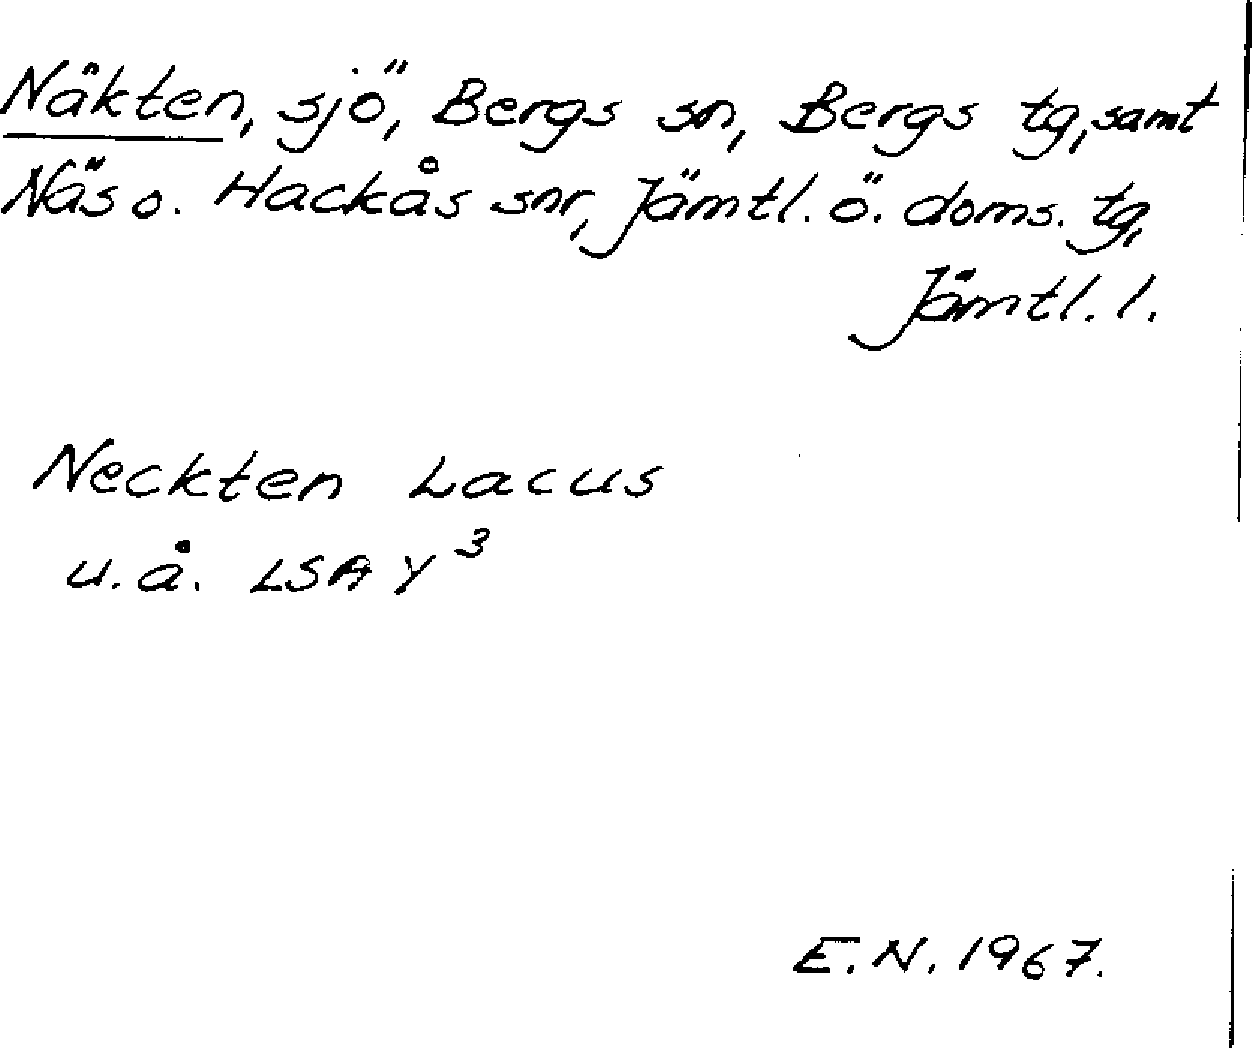 Näkten, sjö, Bergs sn, Bergs tg, samt
Näs o. Hackås snr, Jämtl. ö. doms. tg,
Jämtl. l.
Neckten Lacus
u. å. LSA Y³
E. N. 1967.